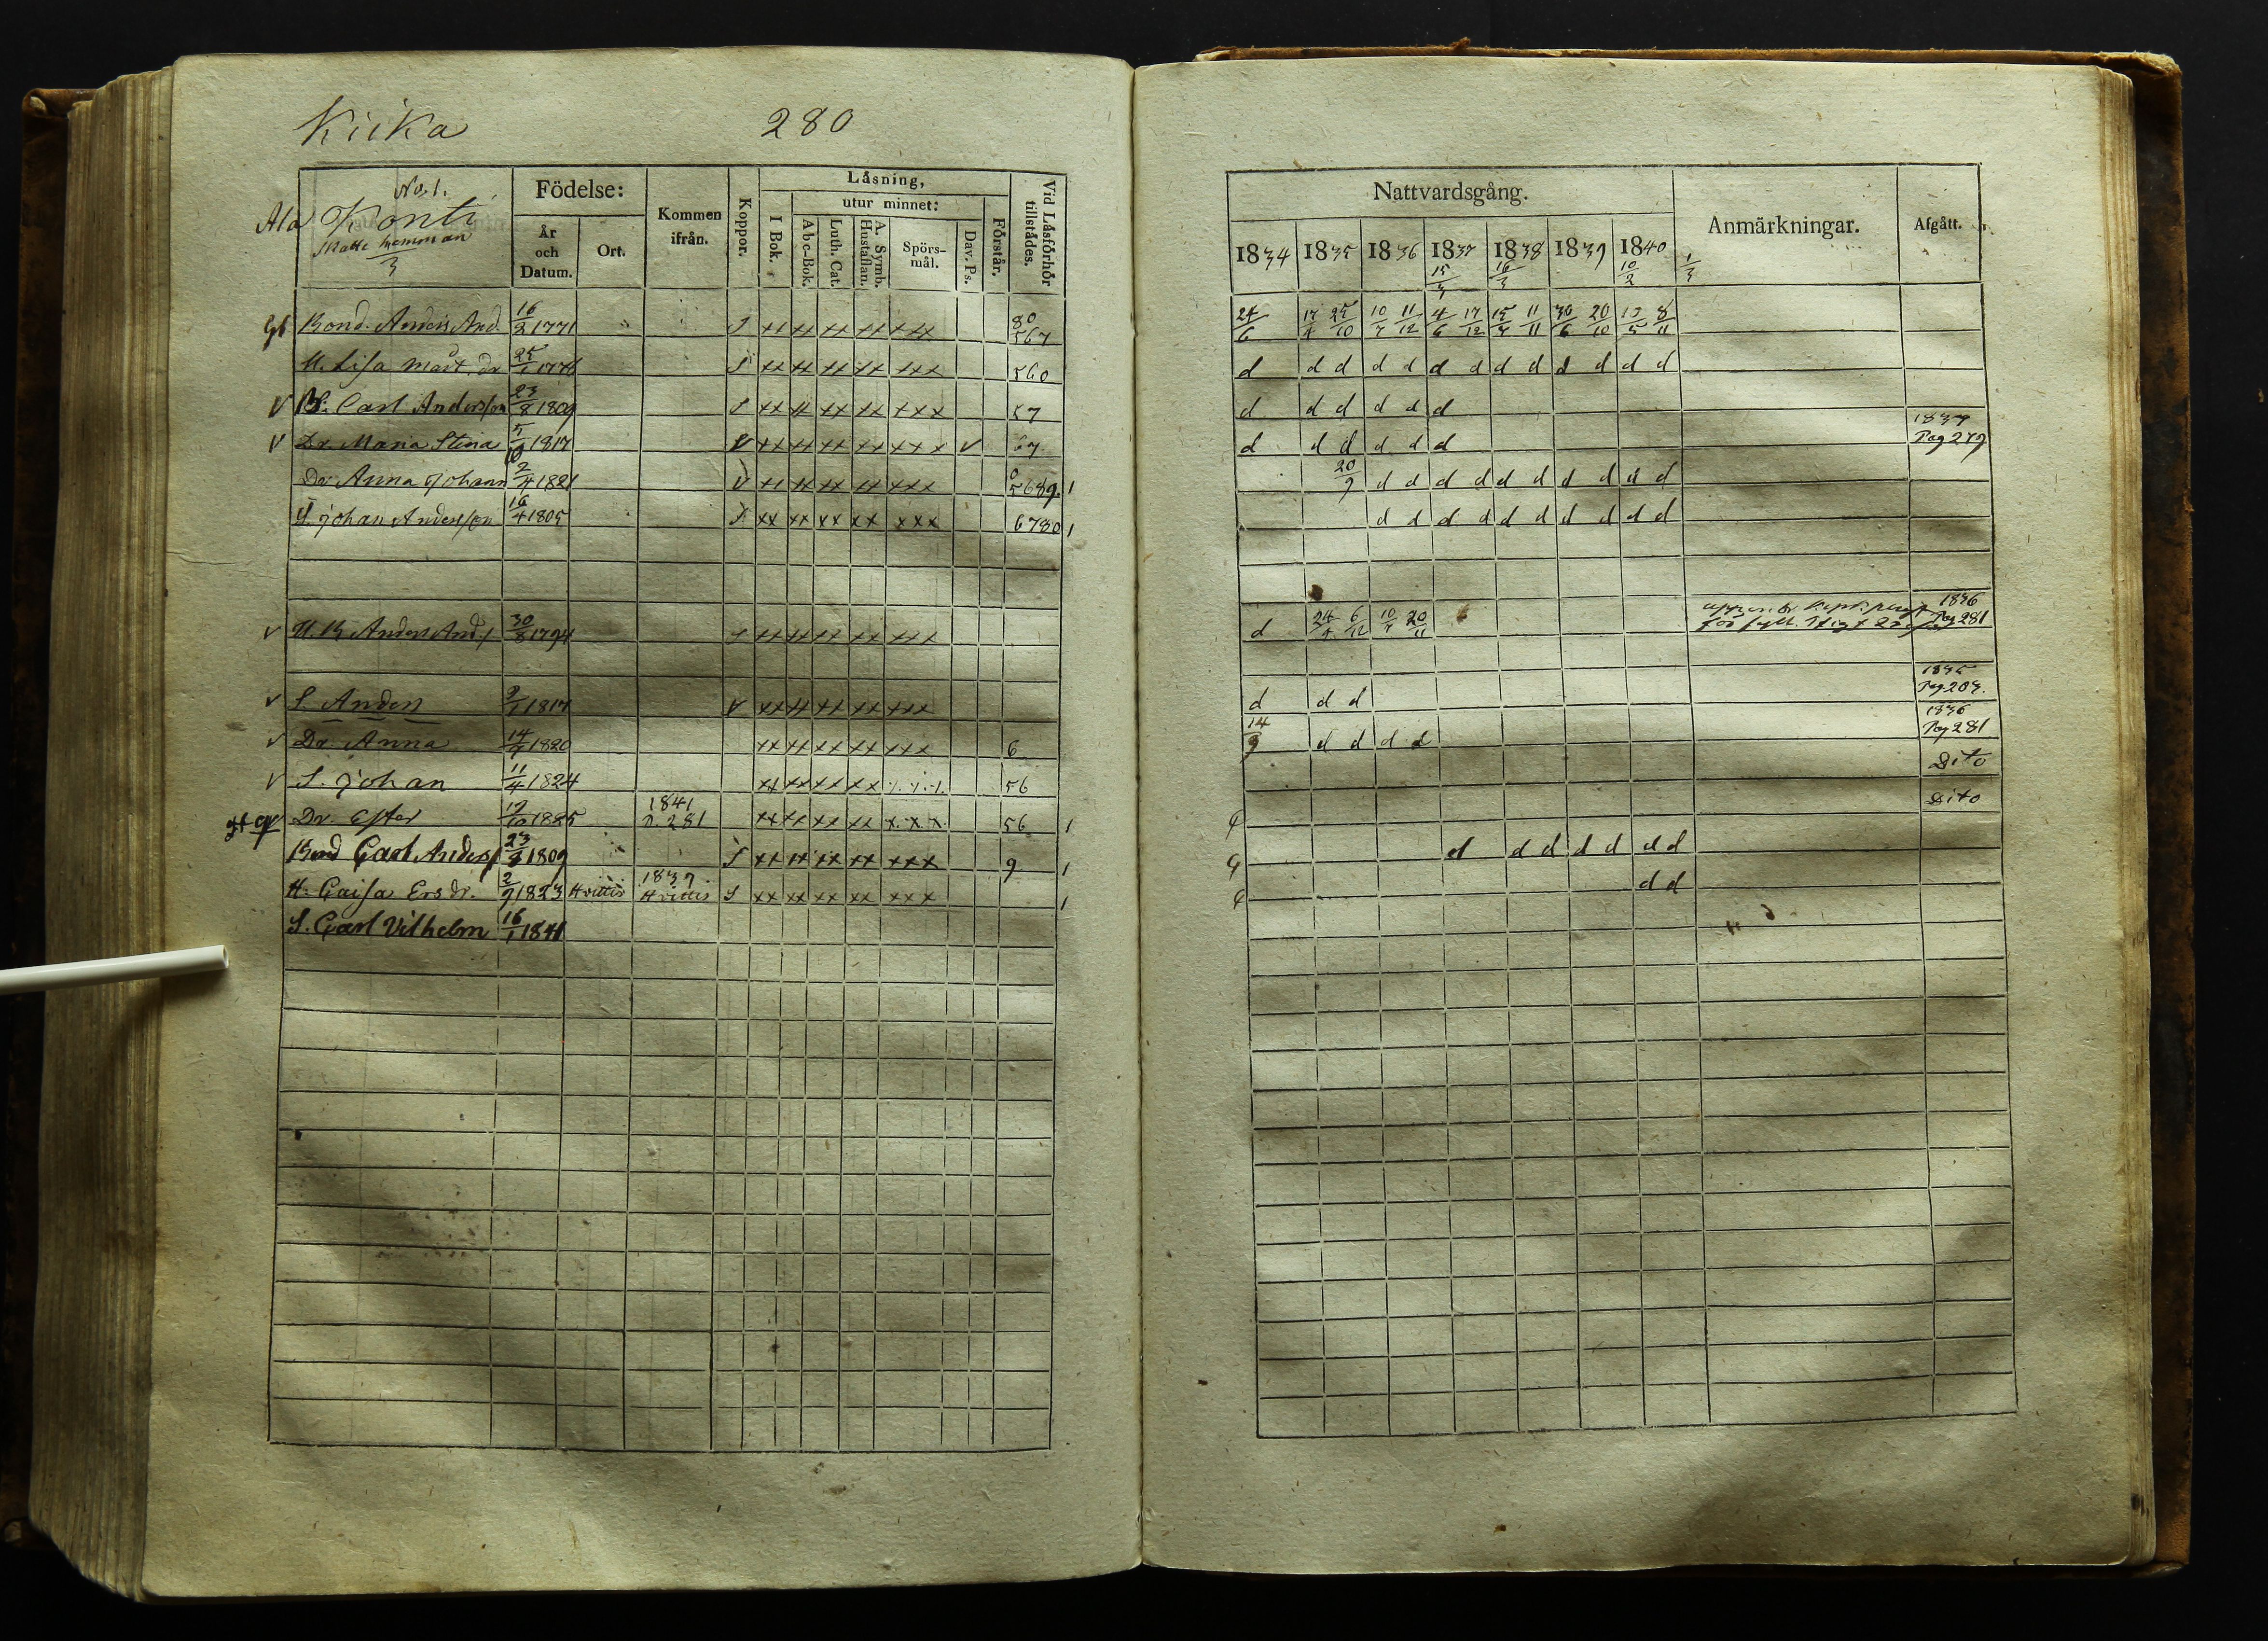 Kiika 280
No, 1.
Ala Konti
Skatte hemman
1/3
Födelse:
År och Datum.
Ort.
Kommen ifrån.
Koppor.
Läsning,
I Bok.
utur minnet:
Abc-Bok.
Luth. Cat.
A. Symb. Hustaflan.
Spörsmål.
Dav. Ps.
Förstår.
Vid Läsförhör tillstädes.
Nattvardsgång.
1834 1835 1836 1837 1838 1839 1840
15/3 16/3 10/2 1/3
Anmärkningar.
Afgått.
Bond. Anders And. 16/2 1771 S xx xx xx xx xxx 80 567 24/6 17/4 25/10 10/7 11/12 4/6 17/12 15/7 11/11 30/6 20/10 8/11
H. Lisa Mart. dr 25/1 1778 S xx xx xx xx xxx 560 d d d d d d d d d d d d d
v B: Carl Andersson 23/8 1809 S xx xx xx xx xxx 57 d d d d d d
v Dr. Maria Stina 5/10 1817 V xx xx xx xx xxx v 67 d d d d d d 1837 Pag 279
Dr Anna Johann 2/4 1821 V xx xx xx xx xxx 0 5689. 1 20/9 d d d d d d d d d d
S. Johan Andersson 16/4 1805 S xx xx xx xx xxx 6780 1 d d d d d d d d d d
v H. B Anders And. 30/8 1794 S xx xx xx xx xxx d 24/4 6/12 10/7 20/11 1836 Pag 281
v S. Anders 9/1 1817 V xx xx xx xx xxx d d d 1835 Pag 203.
v Dr Anna 14/7 1820 xx xx xx xx xxx 6 14/9 d d d d 1836 Pag 281
v S. Johan 11/4 1824 xx xx xx xx 56 Dito
Dr. Ester 19/10 1825 1841 p. 281 xx xx xx xx x.x.x. 56 1 Dito
Bond Carl Anders 23/8 1809 S xx xx xx xx xxx 9 1 d d d d d d d
H: Caisa Ers dr. 2/9 1823 Hvittis 1839. Hvittis S xx xx xx xx xxx 1 d d
S. Carl Vilhelm 16/1 1841